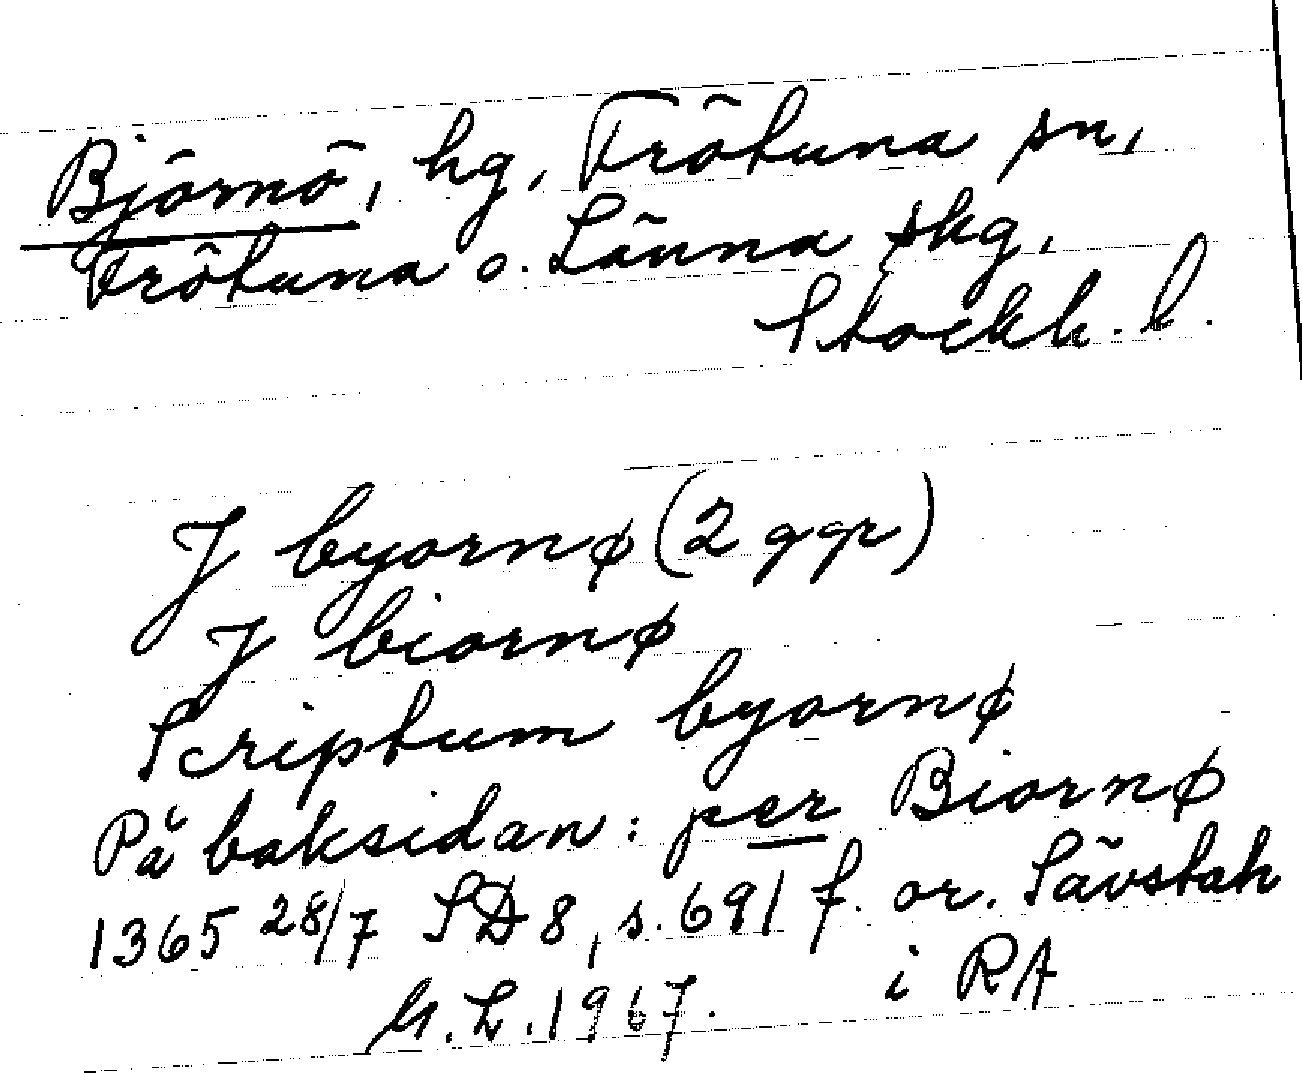 Björnö, hg, Frötuna sn,
Frötuna o. Länna skg,
Stockh. l.
J byornø (2 ggr)
J biornø
Scriptum byornø
På baksidan: per Biornø
1365 28/7 SD 8, s. 691 f. or. Sävstah
i RA
G. L. 1967.